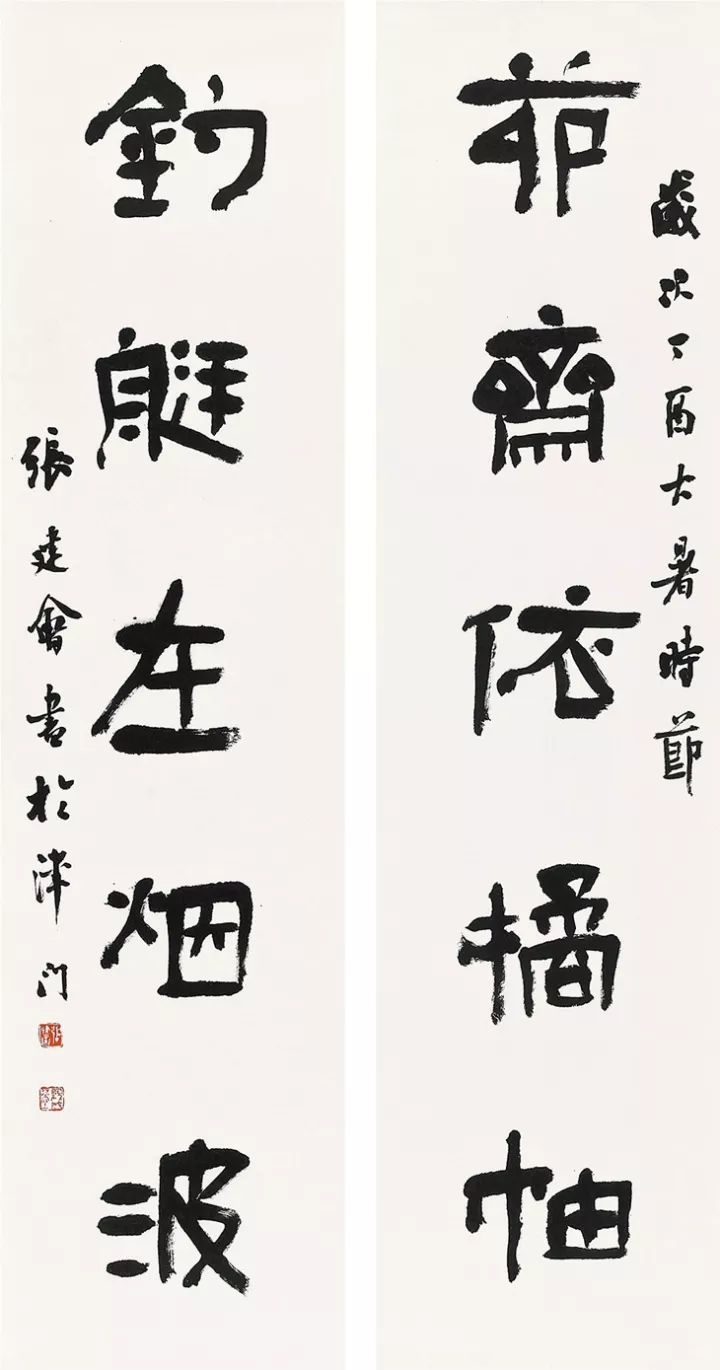 歲次丁酉大暑時節
茆齋依橘柚
釣艇在烟波
張建會書於津門